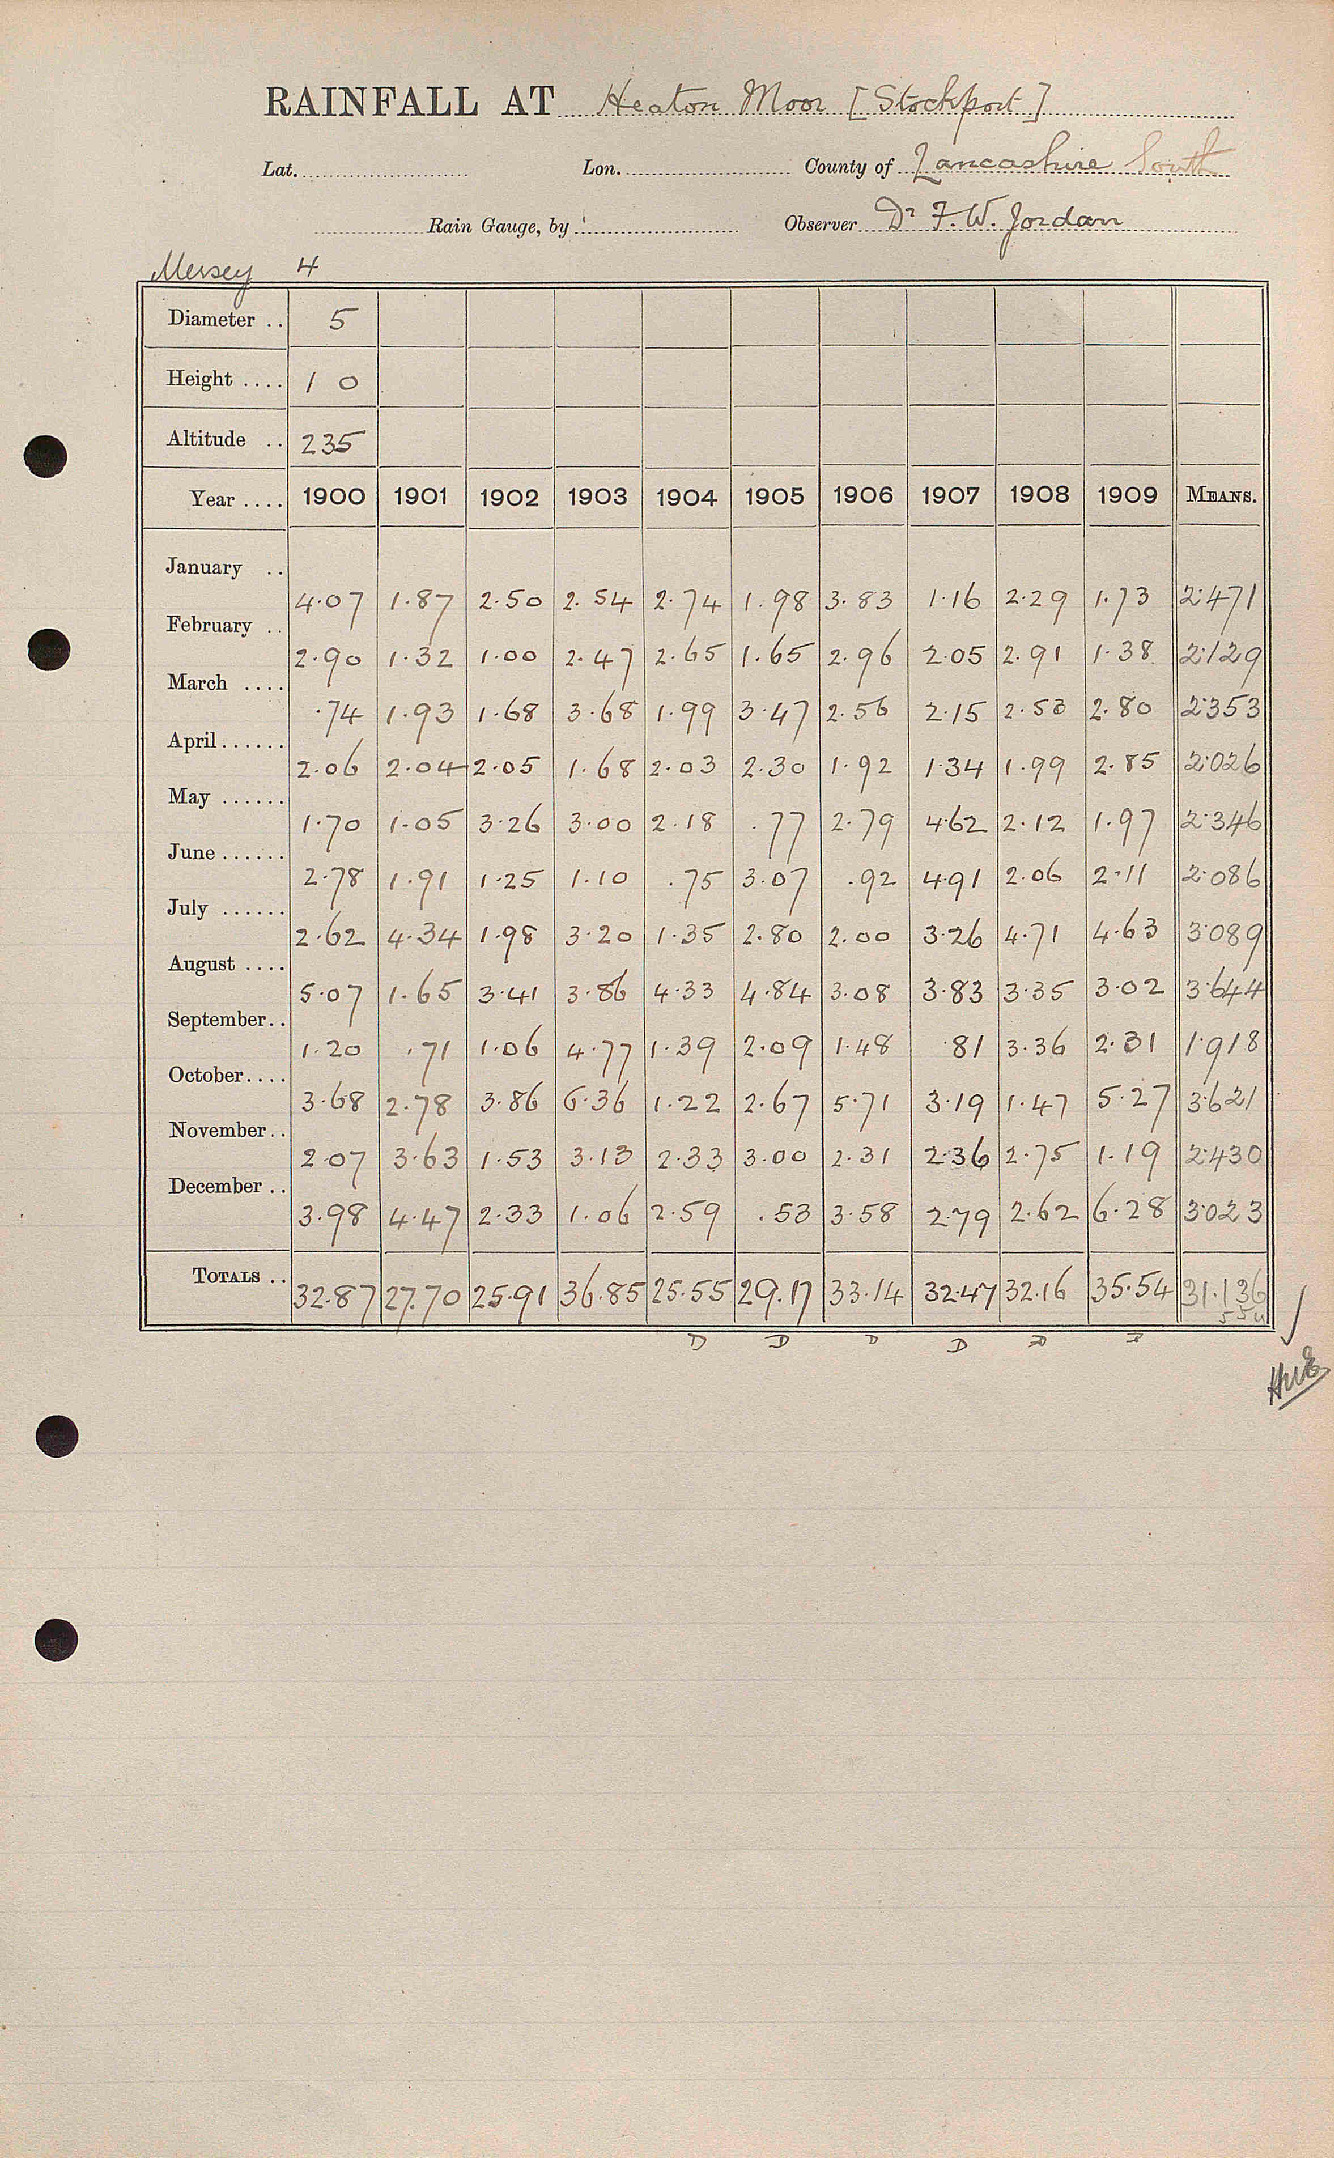 RAINFALL AT Heaton Moor [Stockport]
Lat. Lon. County of Lancashire South
Rain Gauge, by Observer Dr F. W. Jordan
Mersey 4
Diameter .. 5
Height .... 1 0
Altitude .. 235
Year .... 1900 1901 1902 1903 1904 1905 1906 1907 1908 1909 MEANS.
January .. 4.07 1.87 2.50 2.54 2.74 1.98 3.83 1.16 2.29 1.73 2.471
February .. 2.90 1.32 1.00 2.47 2.65 1.65 2.96 2.05 2.91 1.38 2.129
March .... .74 1.93 1.68 3.68 1.99 3.47 2.56 2.15 2.53 2.80 2.353
April...... 2.06 2.04 2.05 1.68 2.03 2.30 1.92 1.34 1.99 2.85 2.026
May ...... 1.70 1.05 3.26 3.00 2.18 .77 2.79 4.62 2.12 1.97 2.346
June ...... 2.78 1.91 1.25 1.10 .75 3.07 .92 4.91 2.06 2.11 2.086
July ...... 2.62 4.34 1.98 3.20 1.35 2.80 2.00 3.26 4.71 4.63 3.089
August .... 5.07 1.65 3.41 3.86 4.33 4.84 3.08 3.83 3.35 3.02 3.644
September.. 1.20 .71 1.06 4.77 1.39 2.09 1.48 .81 3.36 2.31 1.918
October.... 3.68 2.78 3.86 6.36 1.22 2.67 5.71 3.19 1.47 5.27 3.621
November.. 2.07 3.63 1.53 3.13 2.33 3.00 2.31 2.36 2.75 1.19 2.430
December .. 3.98 4.47 2.33 1.06 2.59 .53 3.58 2.79 2.62 6.28 3.023
TOTALS .. 32.87 27.70 25.91 36.85 25.55 29.17 33.14 32.47 32.16 35.54 31.136
D D D D